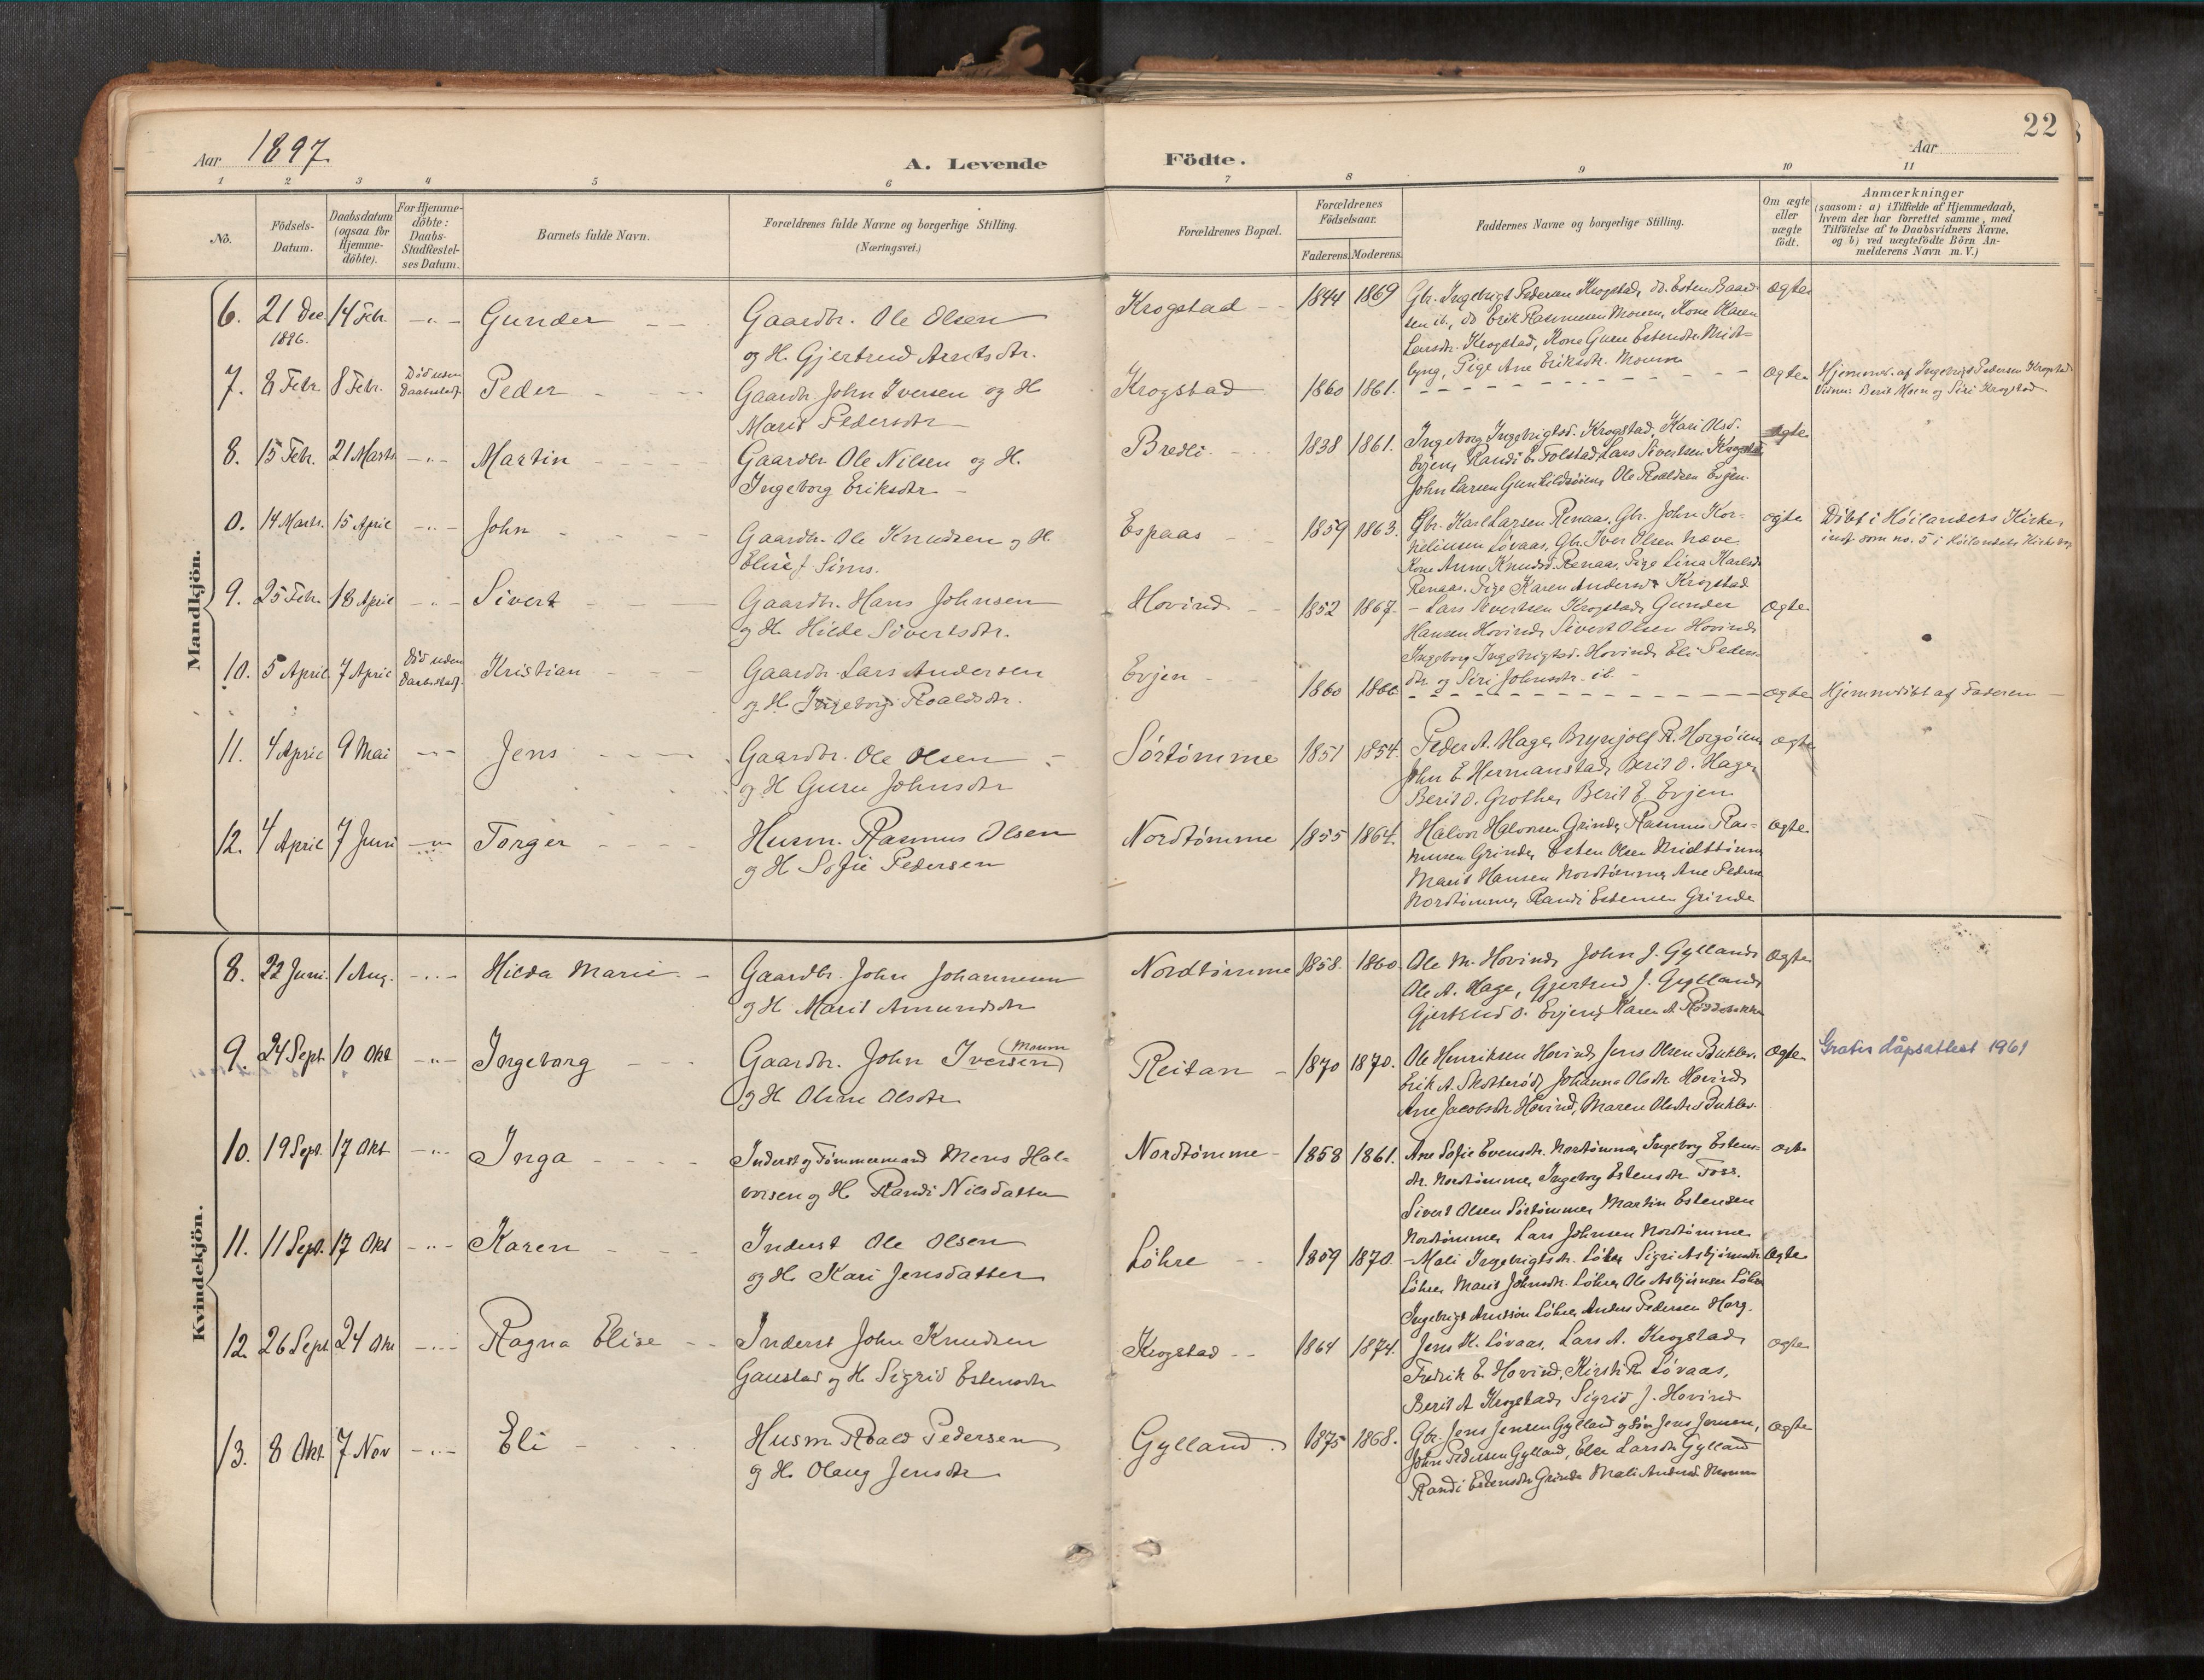 22
Aar 1897. A. Levende Födte. Aar
1 2 3 4 5 6 7 8 9 10 11
No.
Födsels-Datum.
Daabsdatum (ogsaa for Hjemme-döbte).
For Hjemme-döbte: Daabs-Stadfæstel-ses Datum.
Barnets fulde Navn.
Forældrenes fulde Navne og borgerlige Stilling.
(Næringsvei.)
Forældrenes Bopæl.
Forældrenes Födselsaar.
Faderens. Moderens.
Faddernes Navne og borgerlige Stilling.
Om ægte eller uægte födt.
Anmærkninger
(saasom: a) i Tilfælde af Hjemmedaab,
hvem der har forrettet samme, med
Tilföielse af to Daabsvidners Navne,
og b) ved uægtefödte Börn An-
melderens Navn m. V.)
Mandkjön.
6. 21 Dec 1896. 14 Febr. -"- Gunder
Gaardbr. Ole Olsen
og H. Gjertrud Arntsdtr.
Krogstad 1844 1869
Gbr. Ingebrigt Pedersen Krogstad, do. Esten Baard-
sen ib., do Erik Rasmussen Moum, Kone Karen
Larsdtr. Krogstad, Kone Guru Estensdtr. Midt-
lyng, Pige Ane Eriksdtr. Moum
ægte
7. 8 Febr. 8 Febr. Död uden Daabsstadf. Peder
Gaardbr. John Iversen og H.
Marit Pedersdtr
Krogstad 1860 1861.
ægte
Hjemmed. af Ingebrigt Pedersen Krogstad
Vidner: Berit Moen og Siri Krogstad
8. 15 Febr. 21 Marts -"- Martin
Gaardbr Ole Nilsen og H.
Ingeborg Eriksdtr
Bredli 1838 1861.
Ingeborg Ingebrigtsd. Krogstad, Kari Olsd.
Evjen, Randi E. Folstad, Lars Sivertsen Krogstad
John Larsen Gunhildsöien, Ole Roaldsen Evjen.
ægte
0. 14 Marts. 15 April -"- John
Gaardbr. Ole Knudsen og H.
Elisef Sims.
Espaas 1859 1863.
Gbr. Karl Larsen Renaas, Gbr. John Kor-
neliusen Lövaas, Gbr. Iver Olsen Næve
Kone Anne Knudsd. Renaas, Pige Lina Karlsd.
Renaas. Pige Karen Andersdtr Krogstad
ægte
Döbt i Höilandets Kirke,
indf. som no. 5 i Höilandets Kirkebog
9. 25 Febr. 18 April -"- Sivert
Gaardbr. Hans Johnsen
og H. Hilde Sivertsdtr.
Hovind 1852 1867.
Lars Sivertsen Krogstad, Gunder
Hansen Hovind, Sivert Olsen Hovind,
Ingeborg Ingebrigtsd. Hovind, Eli Peders-
dtr. og Siri Johnsdtr. ib.
ægte
10. 5 April 7 April Död uden Daabsstadf. Kristian
Gaardbr. Lars Andersen
og H. Ingeborg Roaldsdtr.
Evjen 1860 1866
ægte
Hjemmedöbt af Faderen
11. 4 April 9 Mai -"- Jens
Gaardbr. Ole Olsen
og H Guru Johnsdtr
Sörtömme 1851 1854.
Peder A. Hage, Brynjolf R. Horgöien
John E. Hermanstad, Berit O. Hage,
Berit O. Grothe, Berit E. Evjen
ægte
12. 4 April 7 Juni -"- Torger
Husm. Rasmus Olsen
og H Sofie Pedersen
Nordtömme 1855 1864.
Halvor Halvorsen Grinde, Rasmus Ras-
mussen Grinde, Esten Olsen Midttömme
Marit Hansen Nordtömme, Ane Pedersen
Nordtömme, Randi Estensen Grinde
ægte
Kvindekjön.
8. 22 Juni. 1 Aug. -"- Hilda Marie
Gaardbr. John Johannesen
og H. Marit Amundsdtr
Nordtömme 1858. 1860.
Ole M. Hovind, John J. Gylland,
Ole A. Hage, Gjertrud J. Gylland,
Gjertrud O. Evjen, Karen A.
ægte
9. 24 Sept. 10 Okt -"- Ingeborg
Gaardbr. John Iversen (Moum)
og H. Oline Olsdtr
Reitan 1870 1870.
Ole Henriksen Hovind, Jens Olsen Buklev.
Erik A. Skotteröd, Johanna Olsdtr. Hovind,
Ane Jacobsdtr. Hovind, Maren Olsdtr Buklev.
ægte
Gratis dåpsattest 1961
10. 19 Sept. 17 Okt -"- Inga
Inderst og Tömmermand Mens Hal-
vorsen og H. Randi Nilsdatter
Nordtömme 1858 1861.
Ane Sofie Evensdtr. Nordtömme, Ingeborg Estens-
dtr. Nordtömme, Ingeborg Estensdtr. Foss.
Sivert Olsen Sörtömme, Martin Estensen
Nordtömme, Lars Johnsen Nordtömme
ægte
11. 11 Sept. 17 Okt -"- Karen
Inderst Ole Olsen
og H. Kari Jensdatter
Löhre 1859 1870.
Mali Ingebrigtsdtr. Löhre, Sigri Asbjörnsdtr.
Löhre, Marit Johnsdtr. Löhre, Ole Asbjörnsen Löhre
Ingebrigt Arntson Löhre, Anders Pedersen Horg.
ægte
12. 26 Sept 24 Okt -"- Ragna Elise
Inderst John Knudsen
Gaustad og H. Sigrid Estensdtr
Krogstad 1864 1874.
Jens K. Lövaas, Lars A. Krogstad,
Fredrik E. Hovind, Kirsti R. Lövaas,
Berit A Krogstad, Sigrid J. Hovind
ægte
13. 8 Okt. 7 Nov -"- Eli
Husm. Roald Pedersen
og H. Olaug Jensdtr
Gylland 1875 1868.
Gbr. Jens Jensen Gylland og Sön Jens Jensen,
John Pedersen Gylland, Elen Larsdtr Gylland
Randi Estensdtr. Grinde Mali Andersd. Moum
ægte